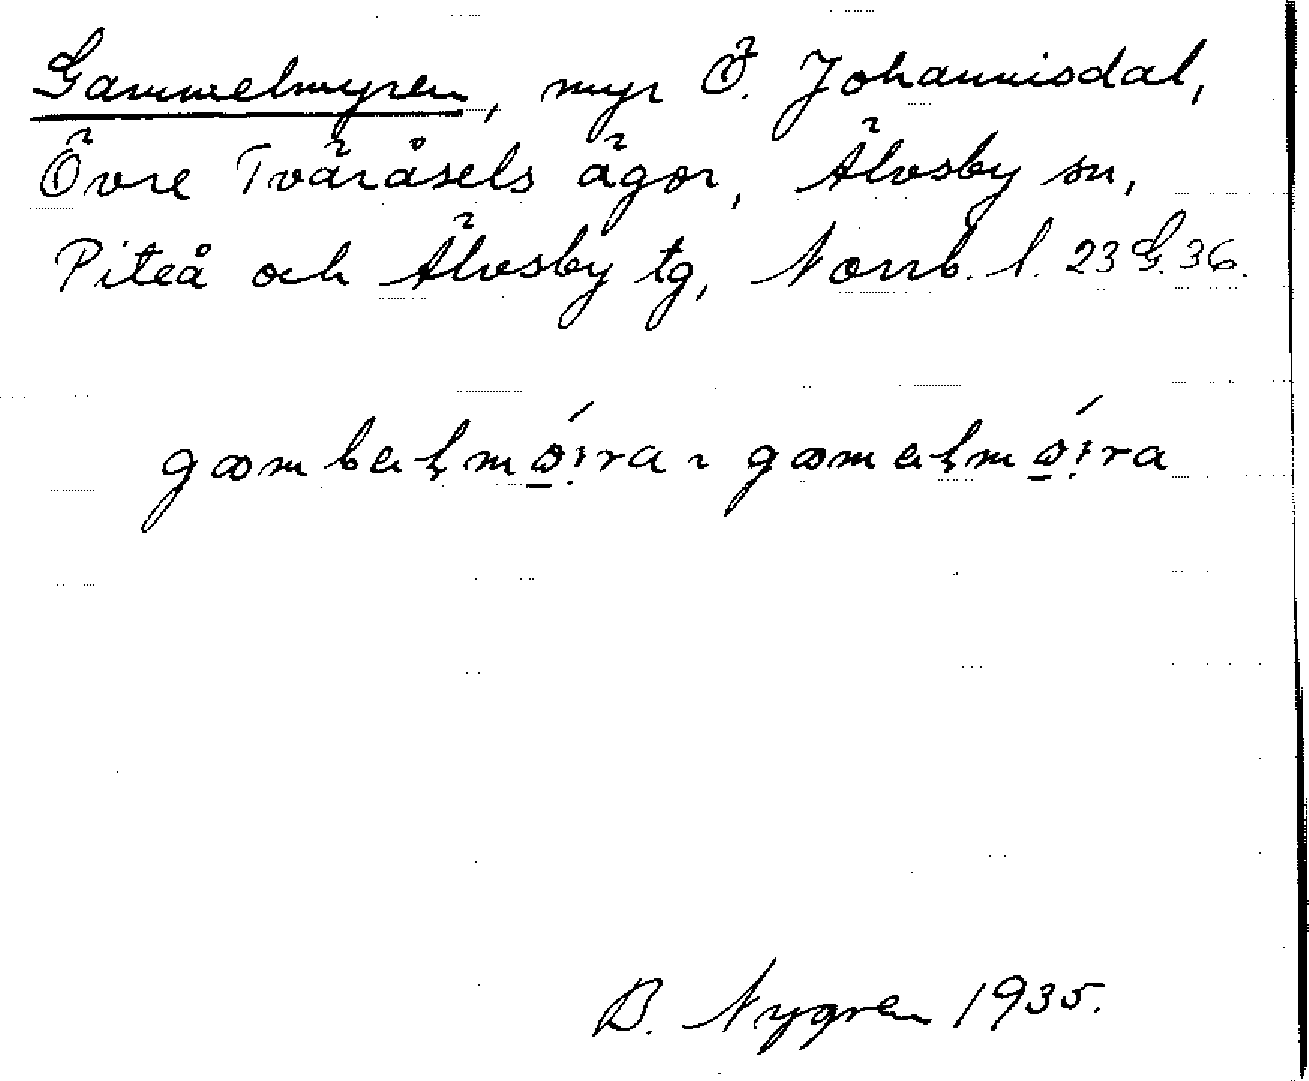 Gammelmyren, myr Ö. Johannisdal,
Övre Tväråsels ägor, Älvsby sn,
Piteå och Älvsby tg, Norrb. l. 23 G. 36.
B. Nygren 1935.